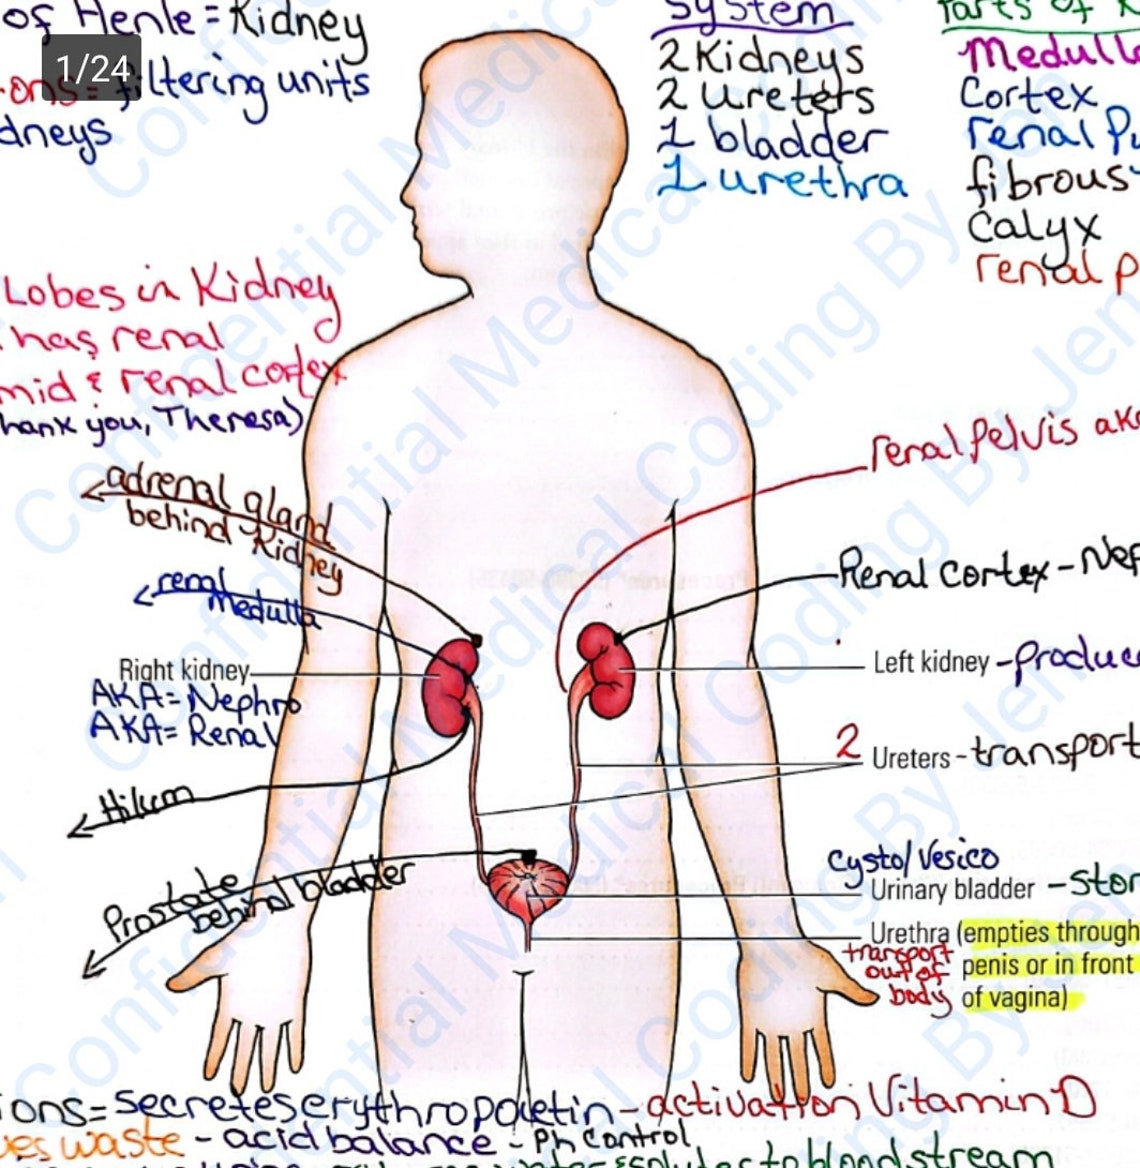 of Henle = Kidney
1/24
ons = filtering units
dneys
System
2 Kidneys
2 Ureters
1 bladder
1 urethra
Parts of K
Medull
Cortex
renal P
fibrous
Calyx
renal P
Lobes in Kidney
has renal
mid & renal cortex
hank you, Theresa)
adrenal gland
behind Kidney
renal
Medulla
Right kidney
AKA= Nephro
AKA= Renal
Hilum
Prostate
behind bladder
renal pelvis aka
Renal Cortex - Nep
Left kidney - produce
2 Ureters - transport
Cysto/Vesico
Urinary bladder - stor
Urethra (empties through
penis or in front
of vagina)
transport
out of
body
ions = secretes erythropoietin - activation Vitamin D
ves waste - acid balance - Ph Control
to bloodstream
Confidential Medical Coding By Jen